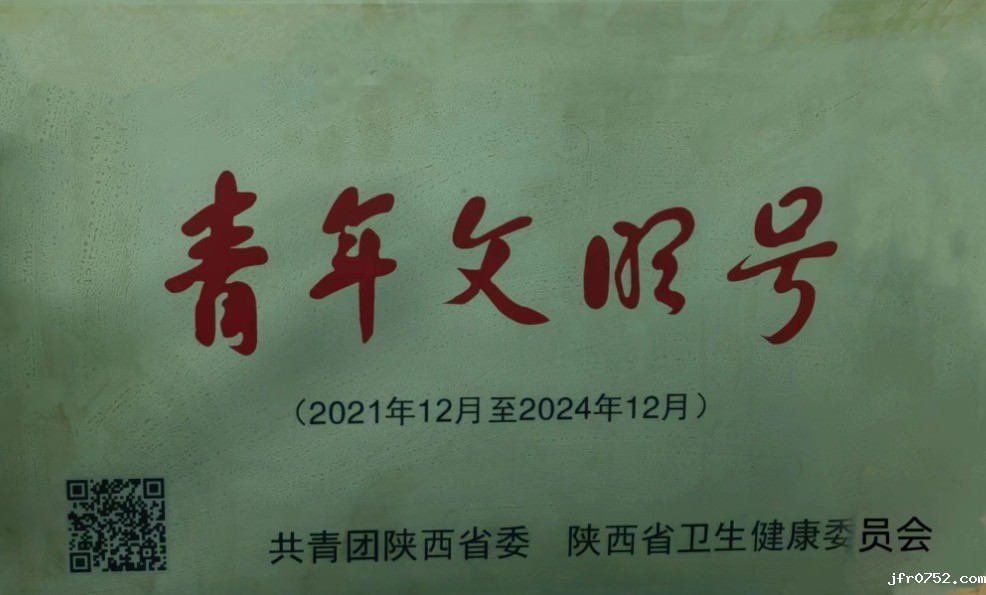 青年文明号
（2021年12月至2024年12月）
共青团陕西省委 陕西省卫生健康委员会
jfr0752.com